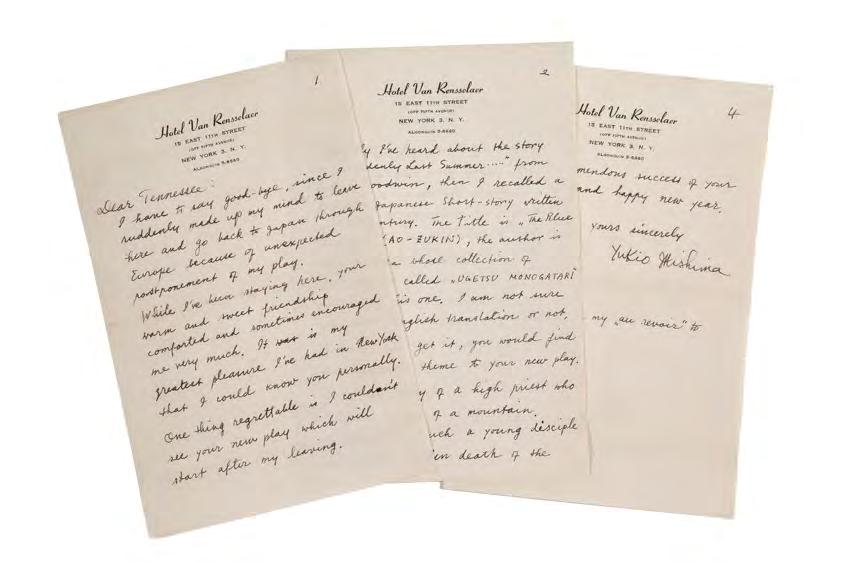 1
Hotel Van Rensselaer
15 EAST 11TH STREET
(OFF FIFTH AVENUE)
NEW YORK 3, N. Y.
ALGONQUIN 5-6640
Dear Tennessee:
I have to say good-bye, since I
suddenly made up my mind to leave
here and go back to Japan through
Europe because of unexpected
postponement of my play.
While I've been staying here, your
warm and sweet friendship
comforted and sometimes encouraged
me very much. It was is my
greatest pleasure I've had in New York
that I could know you personally.
One thing regrettable is I couldn't
see your new play which will
start after my leaving.
2
Hotel Van Rensselaer
15 EAST 11TH STREET
(OFF FIFTH AVENUE)
NEW YORK 3, N. Y.
ALGONQUIN 5-6640
I've heard about the story
denly Last Summer....." from
oodwin, then I recalled a
Japanese short-story written
ntury. The title is „The Blue
(AO-ZUKIN), the author is
a whose collection of
called „UGETSU MONOGATARI"
is one. I am not sure
nglish translation or not,
get it, you would find
theme to your new play.
y of a high priest who
of a mountain.
uch a young disciple
en death of the
4
Hotel Van Rensselaer
15 EAST 11TH STREET
(OFF FIFTH AVENUE)
NEW YORK 3, N. Y.
ALGONQUIN 5-6640
mendous success of your
and happy new year.
yours sincerely
Yukio Mishima
my „au revoir" to